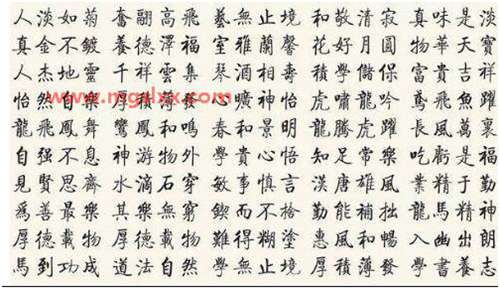 人淡如菊 奮翮高飛 藝無止境 和敬清寂 真味是淡
真金不鍍 養德澤福 室雅蘭馨 花好月圓 物華天寶
人杰地靈 千祥雲集 琴酒相壽 積學儲保 富貴吉祥
怡然自樂 心曠神怡 虎嘯龍吟 鳶飛魚躍
www.mgslxx.com
龍飛鳳舞 鸞鳳和鳴 春和景明 龍騰虎躍 長風萬裏
自强不息 神游物外 學貴心悟 知足常樂 吃虧是福
見賢思齊 水滴石穿 敏事慎言 漢唐雄風 業精于勤
爲善最樂 其樂無窮 鍥而不捨 勤能補拙 龍馬精神
厚德載物 厚德載物 難得糊塗 惠風和暢 入幽出朗
馬到功成 道法自然 學無止境 厚積薄發 學書養志